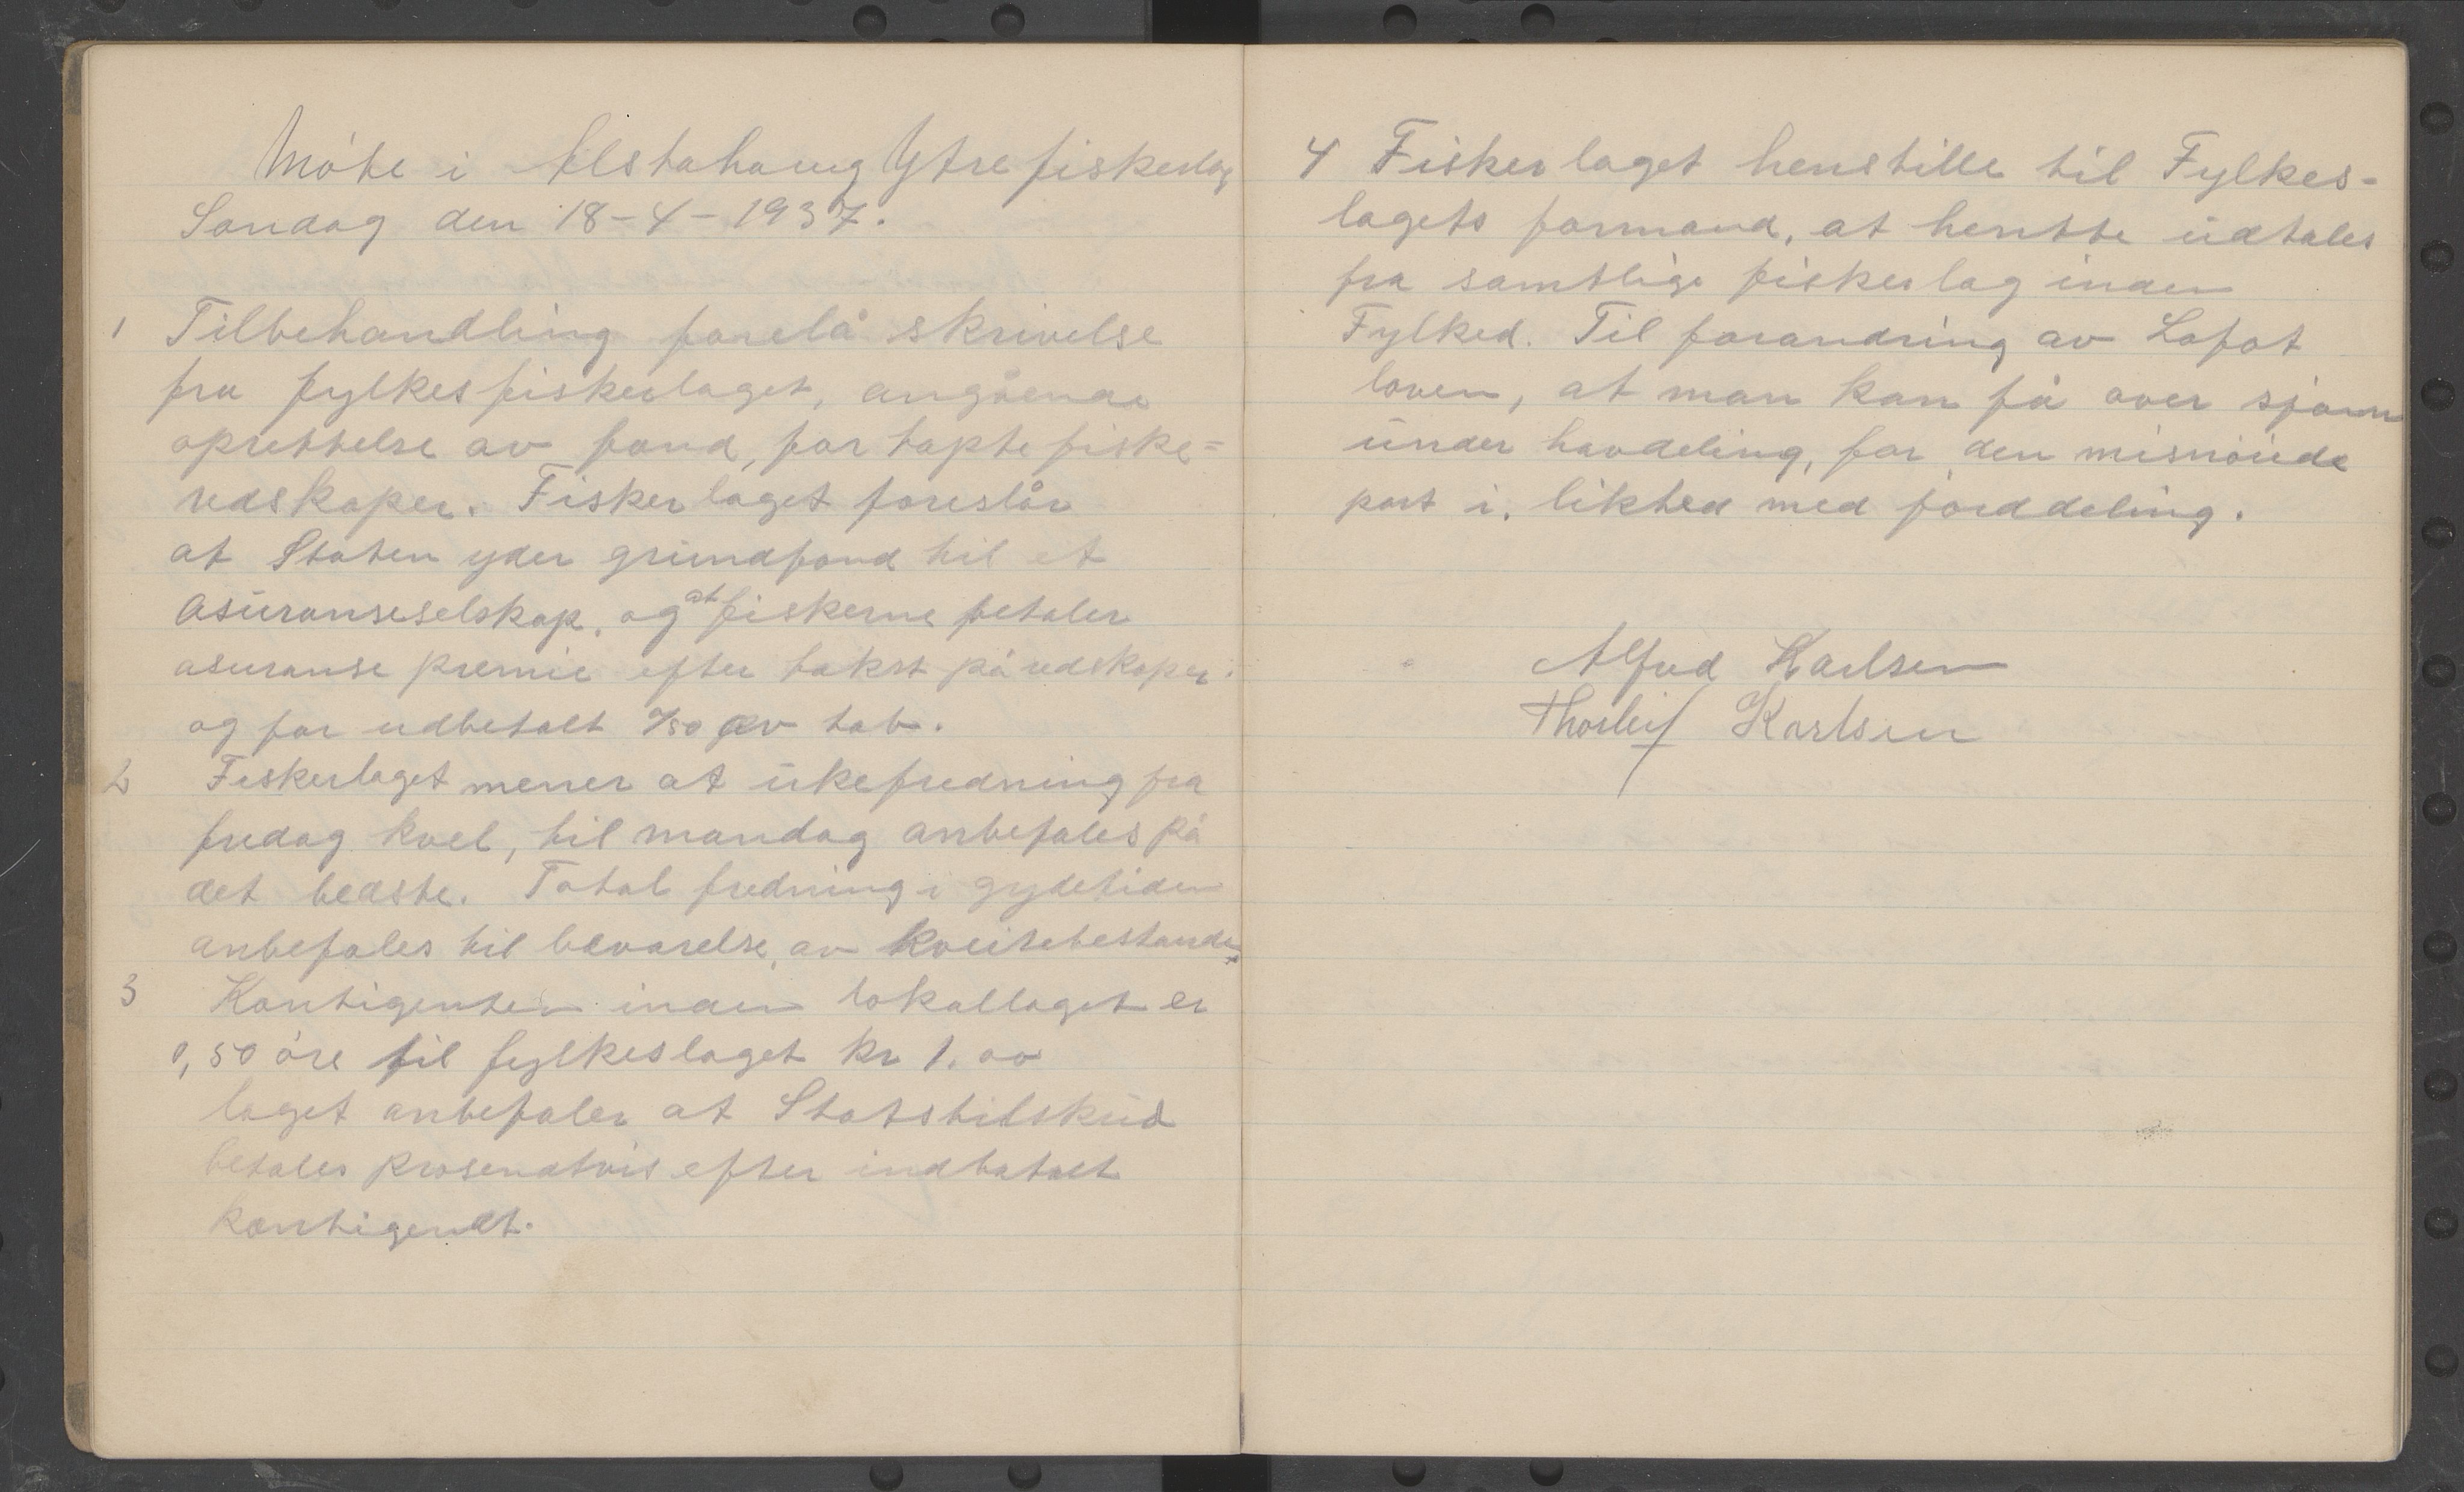 Möte i Alstahaug Ytre fiskerlag
Söndag den 18-4-1937.
1 Tilbehandling forelå skrivelse
fra fylkesfiskerlaget, angående
oprettelse av fond, for tapte fiske=
redskaper. Fiskerlaget foreslår
at Staten yder grundfond til et
Asuranseselskap, og at fiskerne betaler
asuranse premie efter takst på redskaper.
og for udbetalt % 50 av tab.
2 Fiskerlaget mener at ukefredning fra
fredag kvel, til mandag anbefales på
det bedste. Total fredning i gydetiden
anbefales til bevarelse, av kveitebestanden
3 Kontigenten inden lokallaget er
0,50 öre til fylkeslaget kr 1.00
laget anbefaler at Statstilskud
betales prosendtvis efter indbetalt
kontigendt.
4 Fiskerlaget henstille til Fylkes-
lagets formand, at hentte udtales
fra samtlige fiskerlag inden
Fylked. Til forandring av Lofot
loven, at man kan få over sjönn
under havdeling, for den misnöiede
part i. likhed med jorddeling.
Alfred Karlsen
Thorleif Karlsen